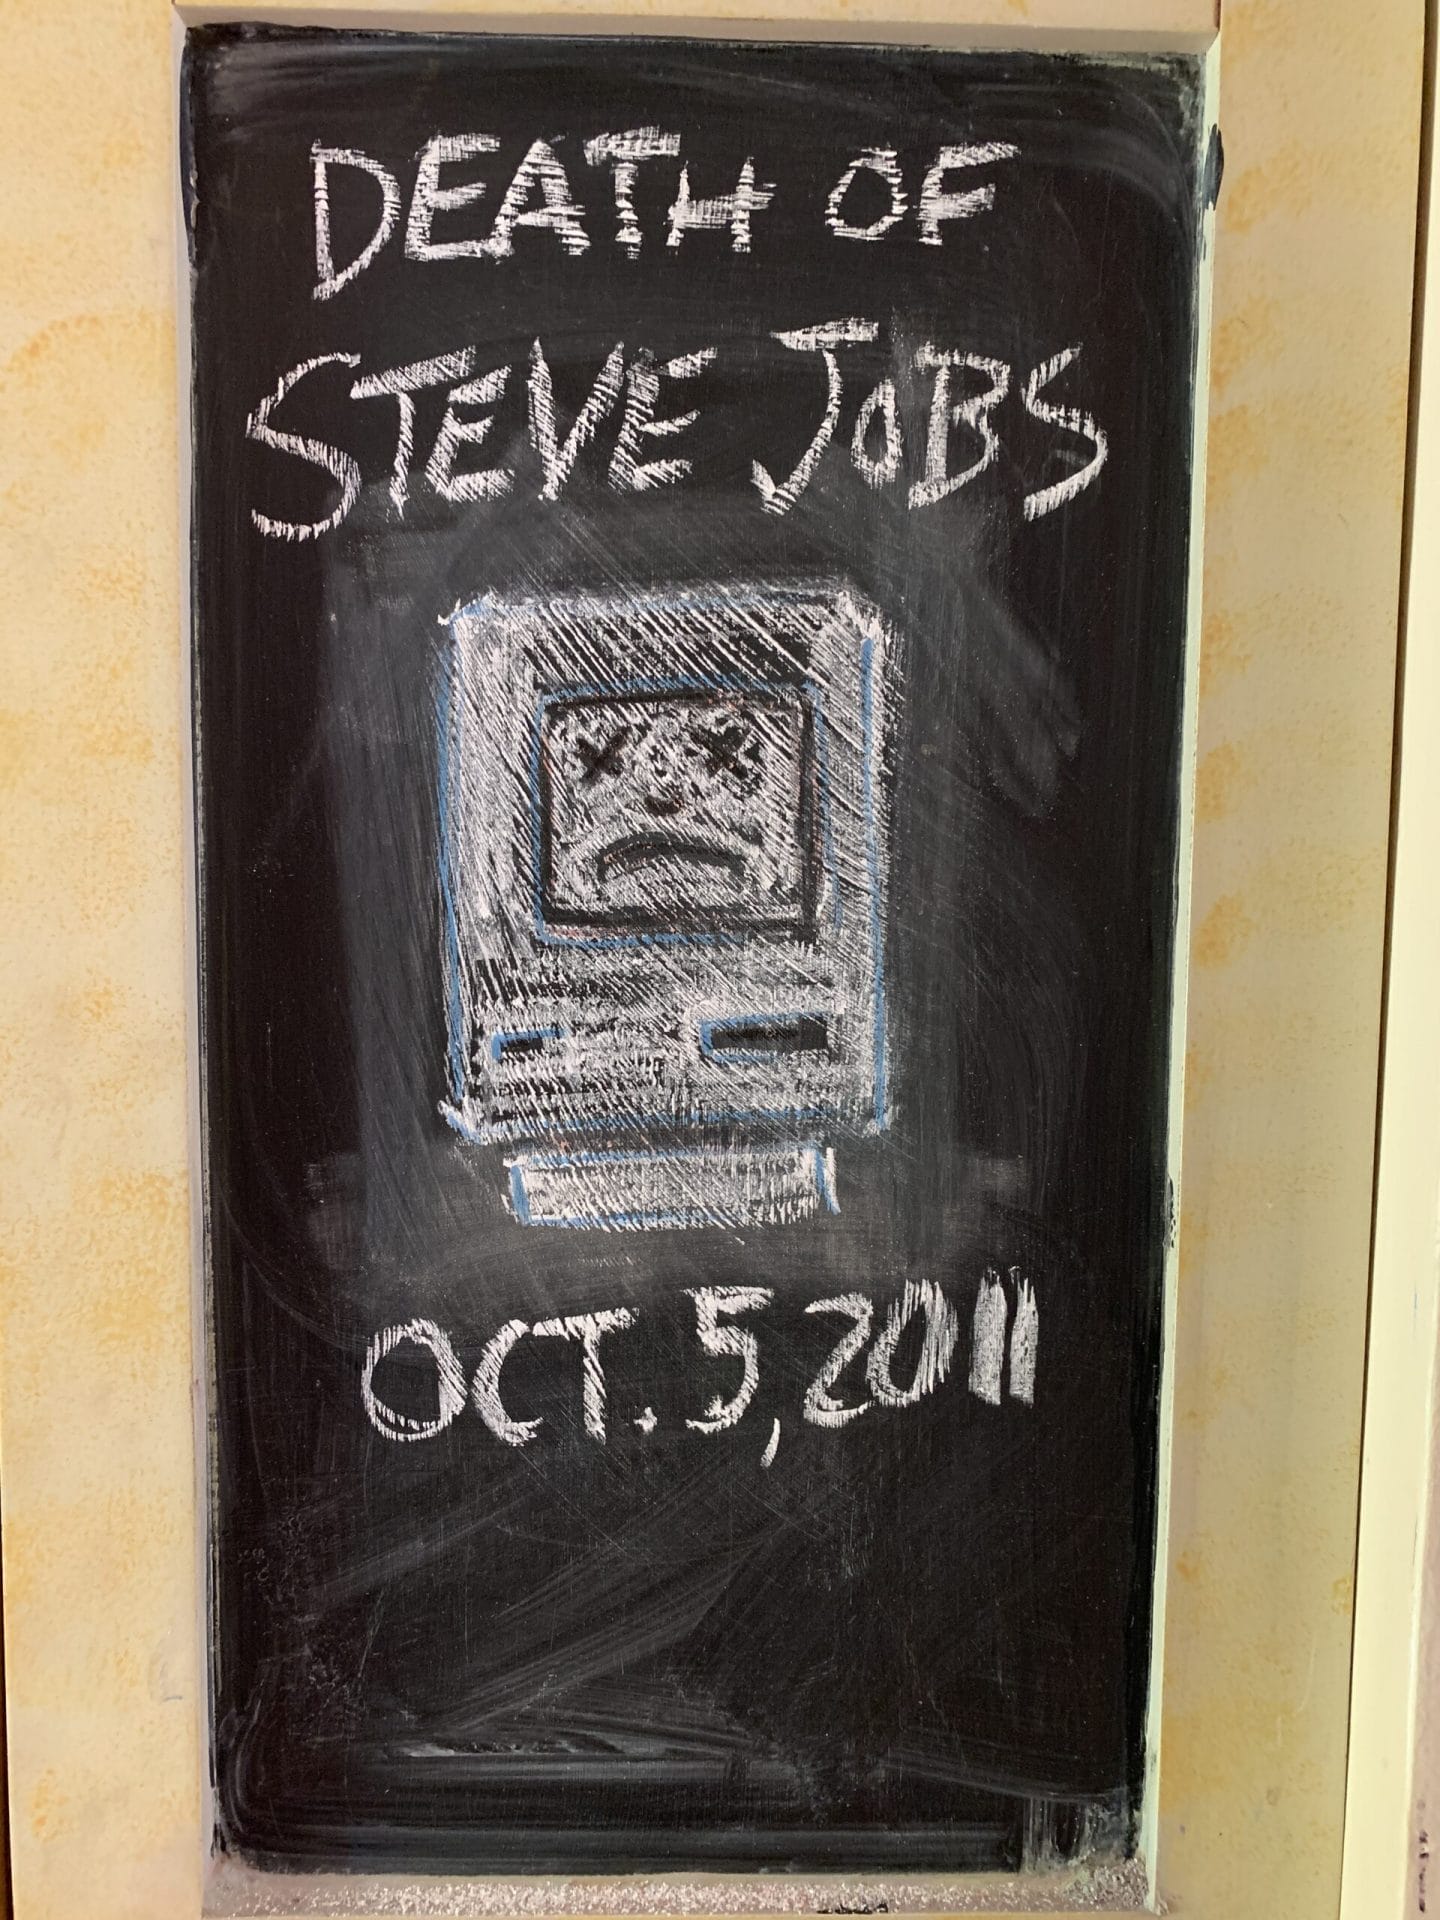 DEATH OF
STEVE JOBS
OCT. 5, 2011